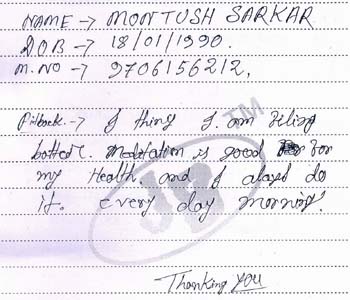 NAME → MONTUSH SARKAR
DOB → 18/01/1990.
M.NO → 9706156212,
Fitback. → I thing I am filing
batter. Meditation is good for
my Health. and I alased do
it. every day morning.
JB TM
Thanking you